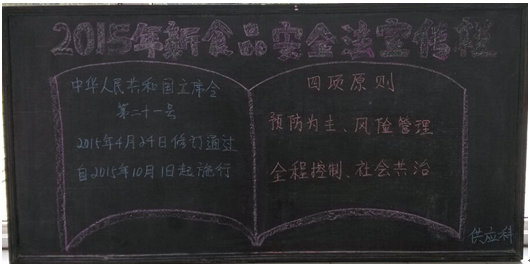 2015年新食品安全法宣传栏
中华人民共和国主席令
第二十一号
2015年4月24日修订通过
自2015年10月1日起施行
四项原则
预防为主、风险管理
全程控制、社会共治
供应科